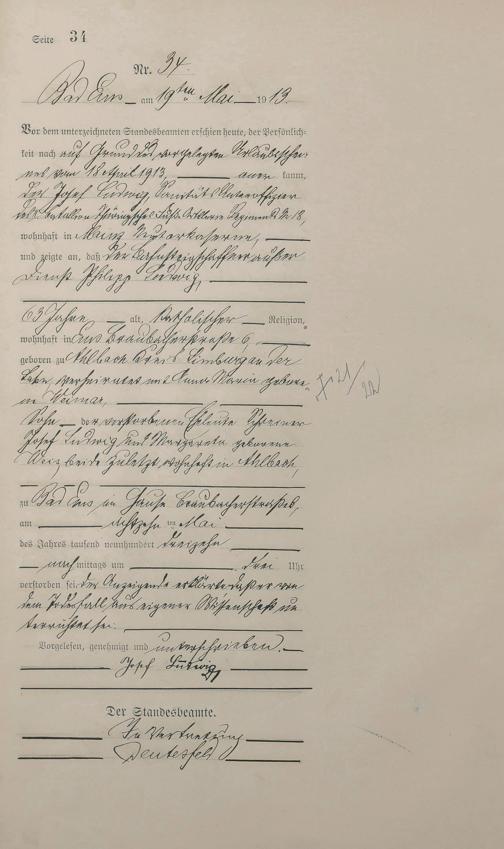 Seite 34
Nr. 34.
Bad Ems am 19ten Mai 1913.
Vor dem unterzeichneten Standesbeamten erschien heute, der Persönlich-
keit nach auf Grund des vorgelegten Urlaubsschei-
nes vom 18 April 1913, kannt,
der Josef Ludwig, Sanitäts Unteroffizier
Regiments No 18,
wohnhaft in Mainz
und zeigte an, daß der Bahnsteigschaffner außer
Dienst Philipp Ludwig,
63 Jahre alt, katholischer Religion,
wohnhaft in Ems Braubacherstraße 6,
geboren zu Ahlbach Kreis Limburg an der
Lahn, verheiratet mit Anna Maria gebore-
ne Weimar,
Sohn der verstorbenen Eheleute Schreiner
Josef Ludwig und Margareta geborene
beide zuletzt wohnhaft in Ahlbach,
zu Bad Ems, im Hause Braubacherstraße 6,
am achtzehn ten Mai
des Jahres tausend neunhundert dreizehn
nachmittags um drei Uhr
verstorben sei. der Anzeigende erklärte daß er von
dem Todesfall aus eigener Wissenschaft un-
terrichtet sei.
Vorgelesen, genehmigt und unterschrieben.
Josef Ludwig
Der Standesbeamte.
In Vertretung